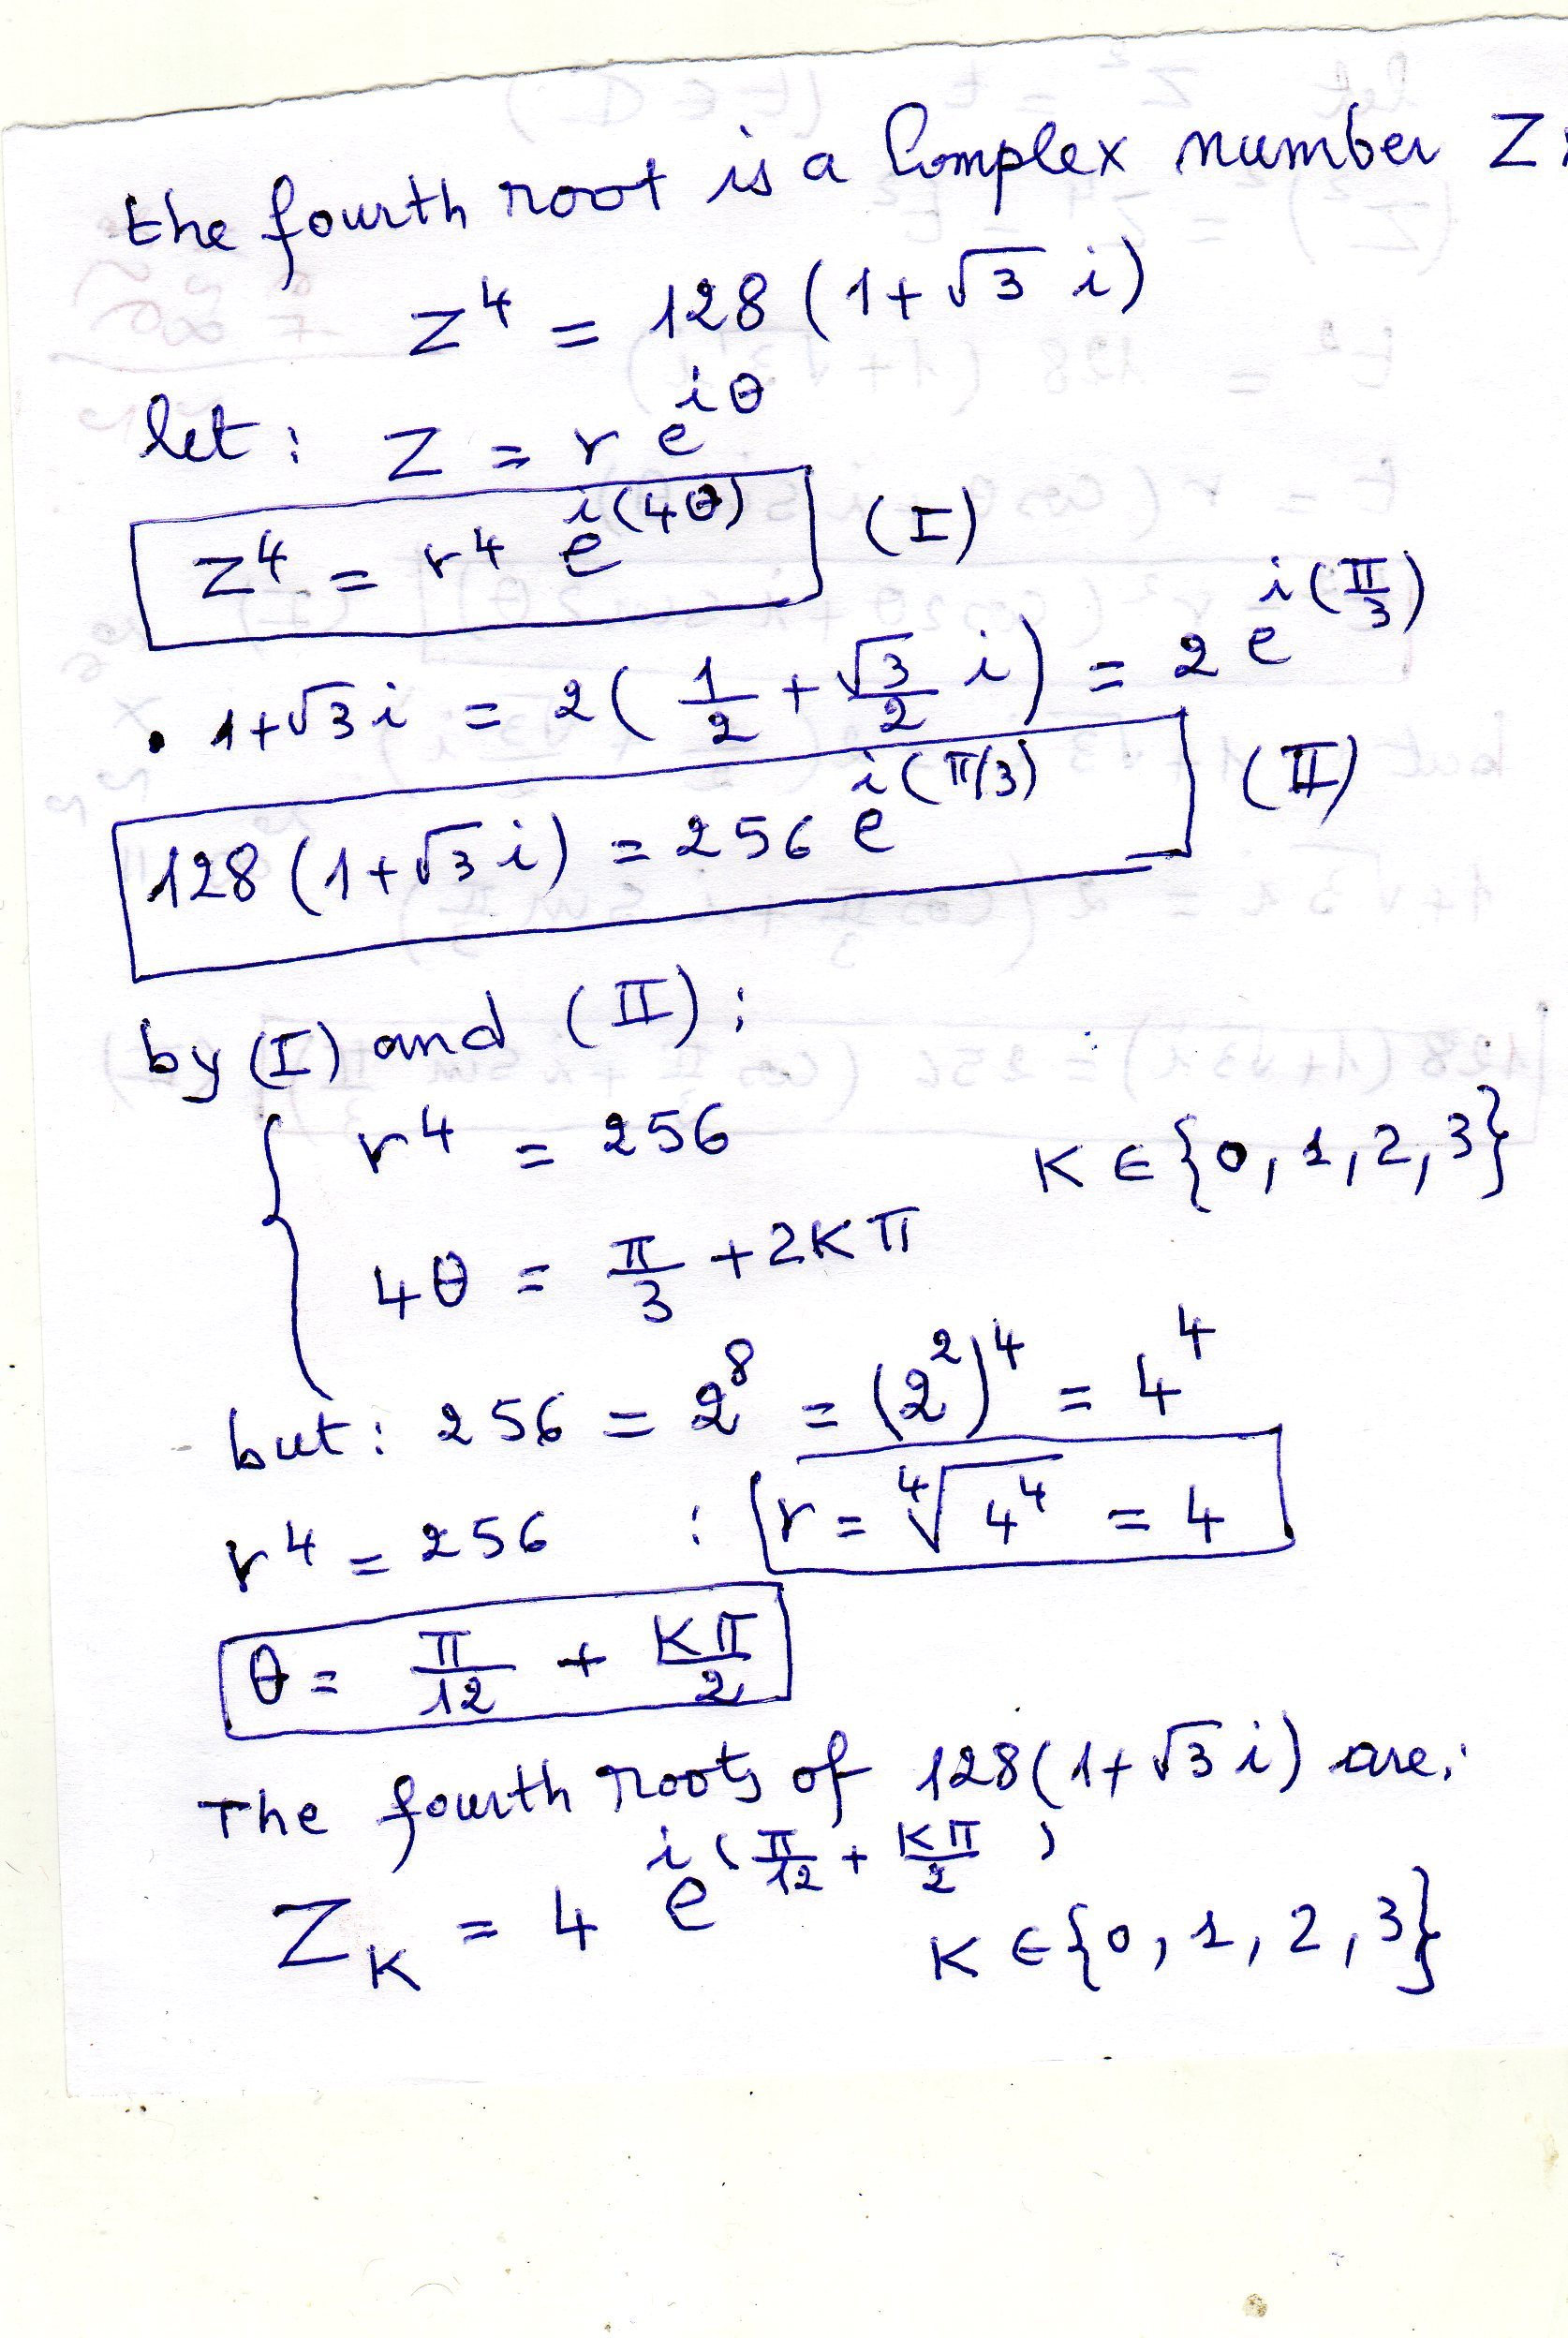 the fourth root is a Complex number Z:
Z⁴ = 128 (1+√3 i)
let: Z = r e^{iθ}
Z⁴ = r⁴ e^{i(4θ)} (I)
• 1+√3 i = 2( 1/2 + √3/2 i) = 2 e^{i(π/3)}
128 (1+√3 i) = 256 e^{i(π/3)} (II)
by (I) and (II):
r⁴ = 256 K ∈ {0, 1, 2, 3}
4θ = π/3 + 2Kπ
but: 256 = 2⁸ = (2²)⁴ = 4⁴
r⁴ = 256 : r = ⁴√4⁴ = 4
θ = π/12 + Kπ/2
The fourth roots of 128(1+√3 i) are:
Z_K = 4 e^{i(π/12 + Kπ/2)} K ∈ {0, 1, 2, 3}